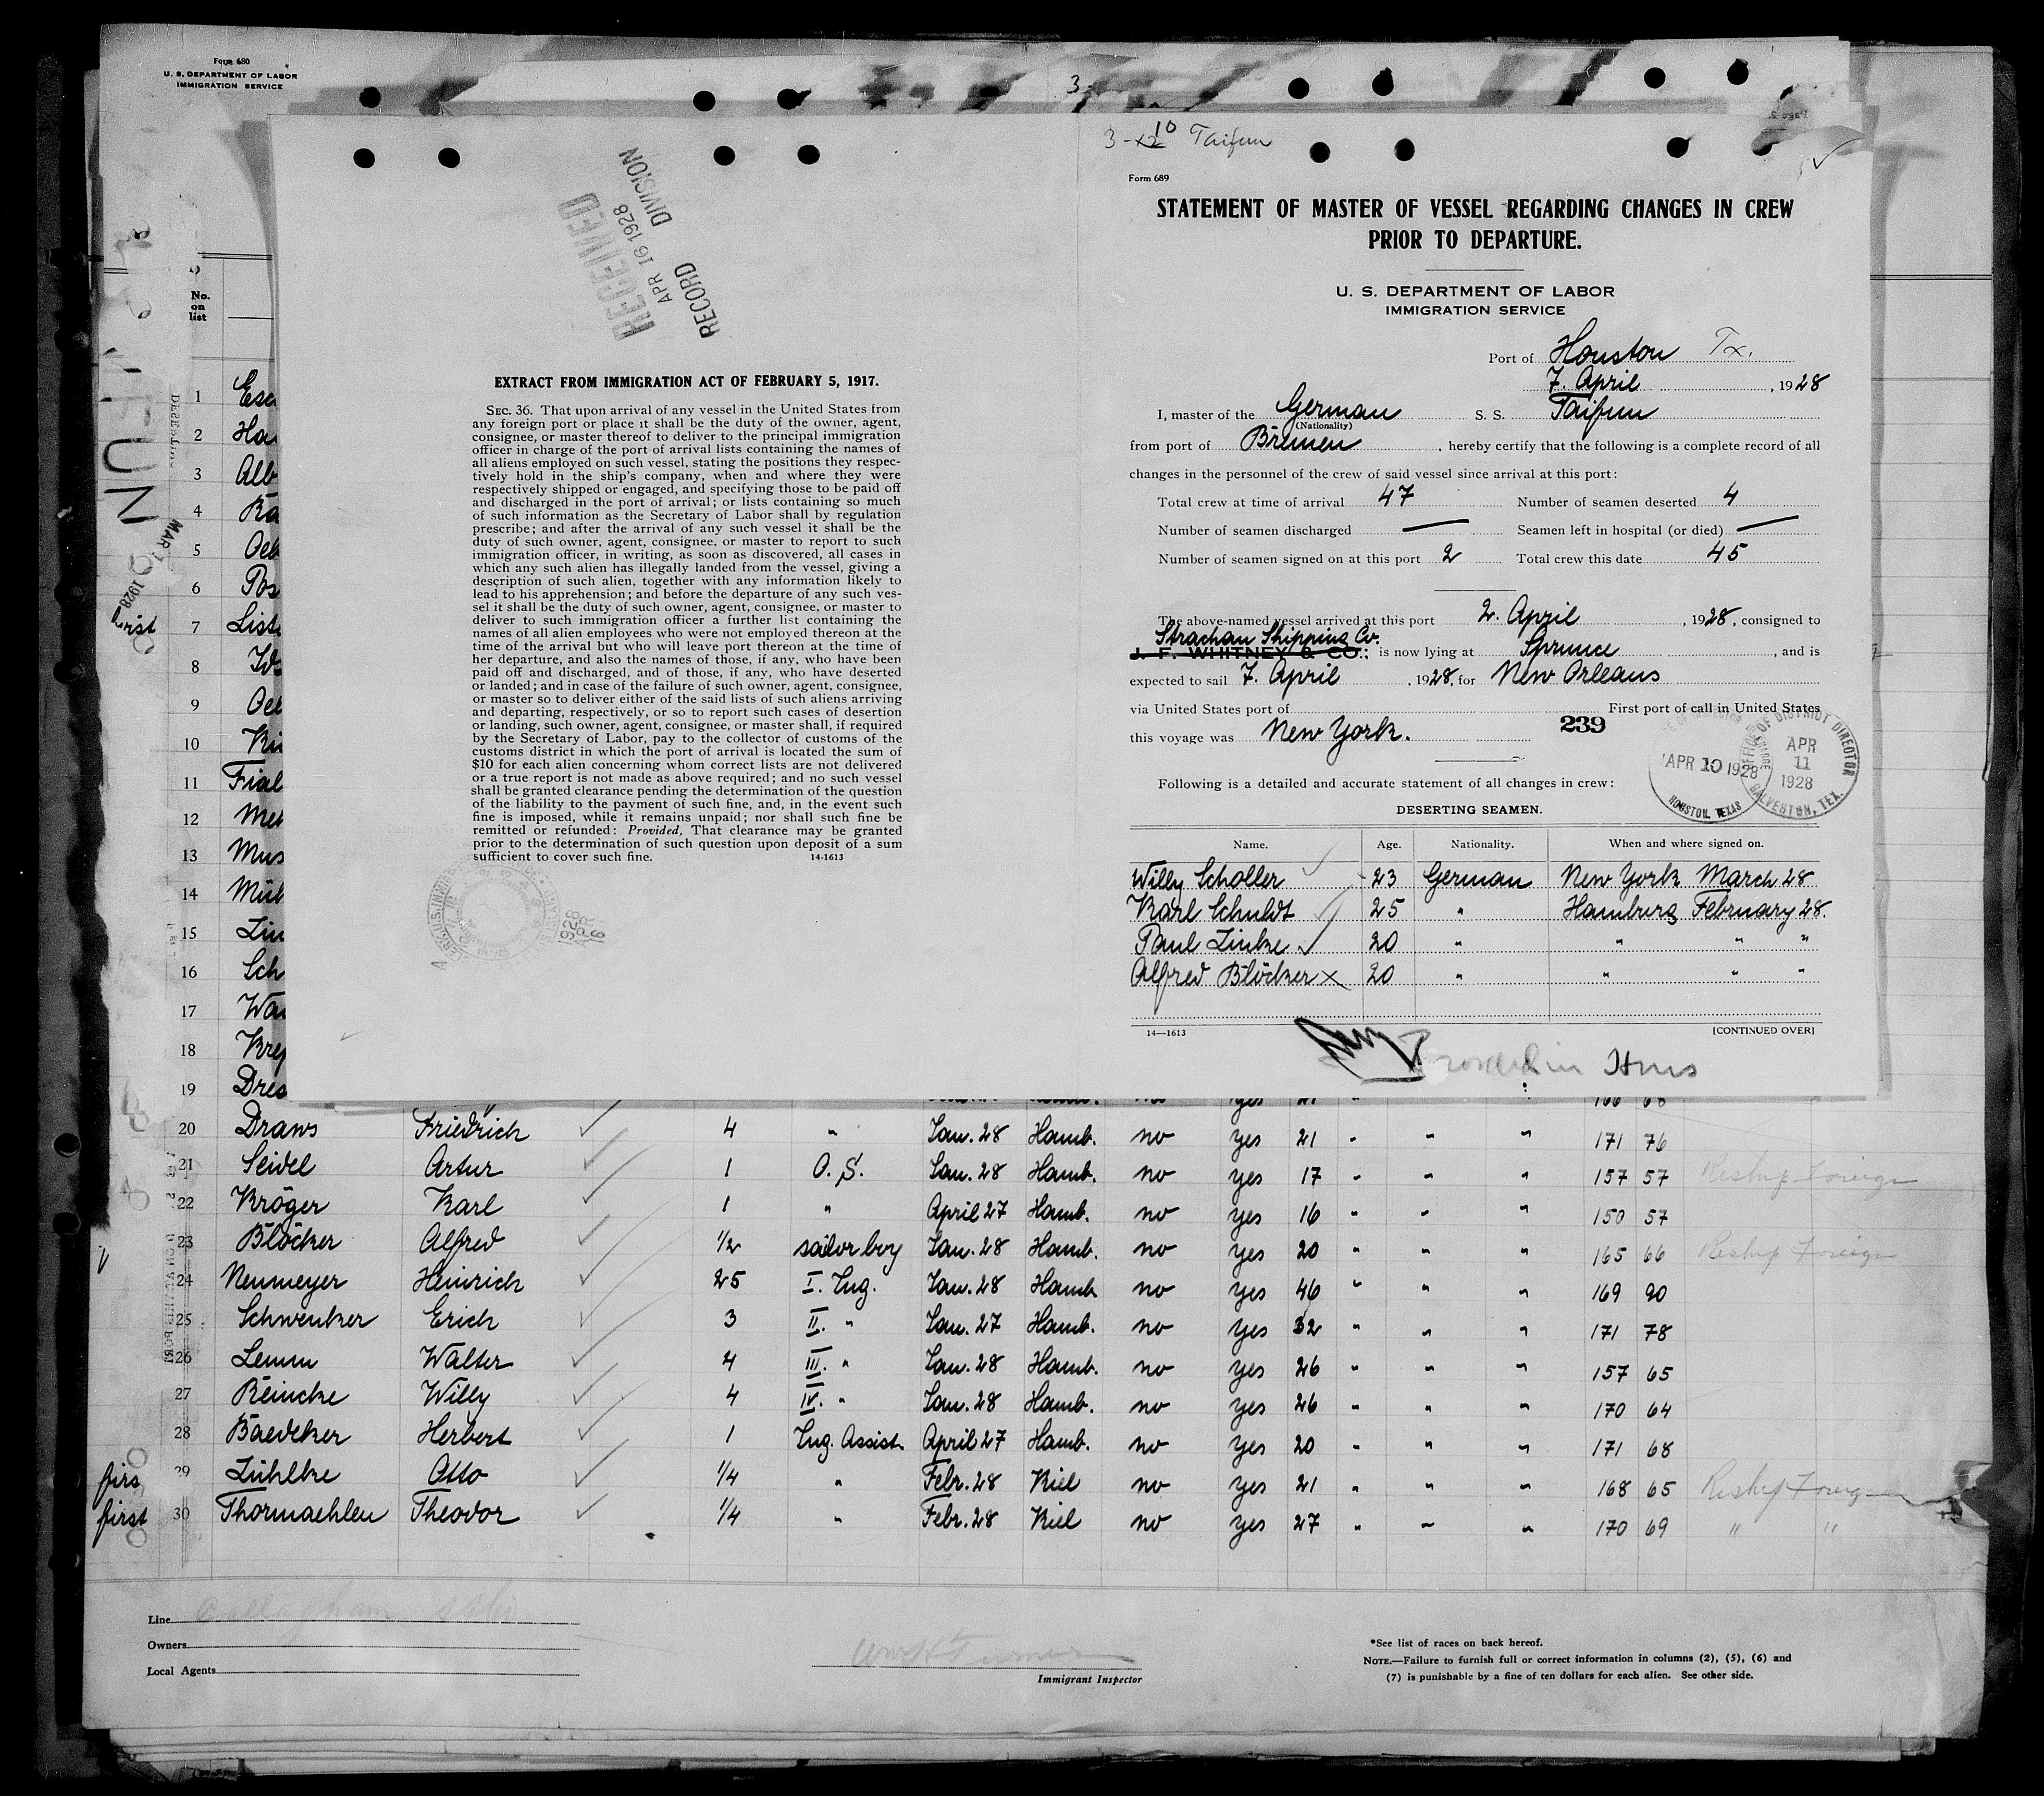 Form 680
U. S. DEPARTMENT OF LABOR
IMMIGRATION SERVICE
3
RECEIVED
APR 16 1928
RECORD DIVISION
EXTRACT FROM IMMIGRATION ACT OF FEBRUARY 5, 1917.
SEC. 36. That upon arrival of any vessel in the United States from
any foreign port or place it shall be the duty of the owner, agent,
consignee, or master thereof to deliver to the principal immigration
officer in charge of the port of arrival lists containing the names of
all aliens employed on such vessel, stating the positions they respec-
tively hold in the ship's company, when and where they were
respectively shipped or engaged, and specifying those to be paid off
and discharged in the port of arrival; or lists containing so much
of such information as the Secretary of Labor shall by regulation
prescribe; and after the arrival of any such vessel it shall be the
duty of such owner, agent, consignee, or master to report to such
immigration officer, in writing, as soon as discovered, all cases in
which any such alien has illegally landed from the vessel, giving a
description of such alien, together with any information likely to
lead to his apprehension; and before the departure of any such ves-
sel it shall be the duty of such owner, agent, consignee, or master to
deliver to such immigration officer a further list containing the
names of all alien employees who were not employed thereon at the
time of the arrival but who will leave port thereon at the time of
her departure, and also the names of those, if any, who have been
paid off and discharged, and of those, if any, who have deserted
or landed; and in case of the failure of such owner, agent, consignee,
or master so to deliver either of the said lists of such aliens arriving
and departing, respectively, or so to report such cases of desertion
or landing, such owner, agent, consignee, or master shall, if required
by the Secretary of Labor, pay to the collector of customs of the
customs district in which the port of arrival is located the sum of
$10 for each alien concerning whom correct lists are not delivered
or a true report is not made as above required; and no such vessel
shall be granted clearance pending the determination of the question
of the liability to the payment of such fine, and, in the event such
fine is imposed, while it remains unpaid; nor shall such fine be
remitted or refunded: Provided, That clearance may be granted
prior to the determination of such question upon deposit of a sum
sufficient to cover such fine. 14-1613
3-10 Taifun
Form 689
STATEMENT OF MASTER OF VESSEL REGARDING CHANGES IN CREW
PRIOR TO DEPARTURE.
U. S. DEPARTMENT OF LABOR
IMMIGRATION SERVICE
Port of Houston Tx.
7. April, 1928
I, master of the German S. S. Taifun
(Nationality)
from port of Bremen, hereby certify that the following is a complete record of all
changes in the personnel of the crew of said vessel since arrival at this port:
Total crew at time of arrival 47 Number of seamen deserted 4
Number of seamen discharged — Seamen left in hospital (or died) —
Number of seamen signed on at this port 2 Total crew this date 45
The above-named vessel arrived at this port 2. April, 1928, consigned to
Strachan Shipping Co.
J. F. WHITNEY & CO.; is now lying at Sprunce, and is
expected to sail 7. April, 1928, for New Orleans
via United States port of First port of call in United States
this voyage was New York. 239
APR 10 1928
HOUSTON, TEXAS
OFFICE OF DISTRICT DIRECTOR
APR 11 1928
GALVESTON, TEX.
Following is a detailed and accurate statement of all changes in crew:
DESERTING SEAMEN.
Name. Age. Nationality. When and where signed on.
Willy Scholler 23 German New York March 28
Karl Schuldt 25 " Hamburg February 28.
Paul Lintze 20 " " " "
Alfred Blöcker x 20 " " " "
14—1613 [CONTINUED OVER]
No. on list
1 Ese
2 Ha
3 Alb
4 Ra
5 Oel
6 Pos
7 List
8 Id
9 Oel
10 Ki
11 Fial
12 Me
13 Mus
14 Mül
15 Lin
16 Sch
17 Wa
18 Krep
19 Dres
MAR 1928
20 Draws Friedrich 4 " Jan. 28 Hamb. no yes 21 " " " 171 76
21 Seidel Artur 1 O. S. Jan. 28 Hamb. no yes 17 " " " 157 57 Reship Foreign
22 Kröger Karl 1 " April 27 Hamb. no yes 16 " " " 150 57
23 Blöcker Alfred 1/2 sailor boy Jan. 28 Hamb. no yes 20 " " " 165 66 Reship Foreign
24 Neumeyer Heinrich 25 I. Ing. Jan. 28 Hamb no yes 46 " " " 169 90
25 Schwentker Erich 3 II. " Jan. 27 Hamb. no yes 32 " " " 171 78
26 Lemm Walter 4 III. " Jan. 28 Hamb. no yes 26 " " " 157 65
27 Reincke Willy 4 IV. " Jan. 28 Hamb. no yes 26 " " " 170 64
28 Baedeker Herbert 1 Ing. Assist. April 27 Hamb. no yes 20 " " " 171 68
29 Lühlke Otto 1/4 " Febr. 28 Kiel no yes 21 " " " 168 65 Reship Foreign
first 30 Thormaehlen Theodor 1/4 " Febr. 28 Kiel no yes 27 " " " 170 69 " "
Line
Owners
Local Agents
Immigrant Inspector
*See list of races on back hereof.
NOTE.—Failure to furnish full or correct information in columns (2), (5), (6) and
(7) is punishable by a fine of ten dollars for each alien. See other side.